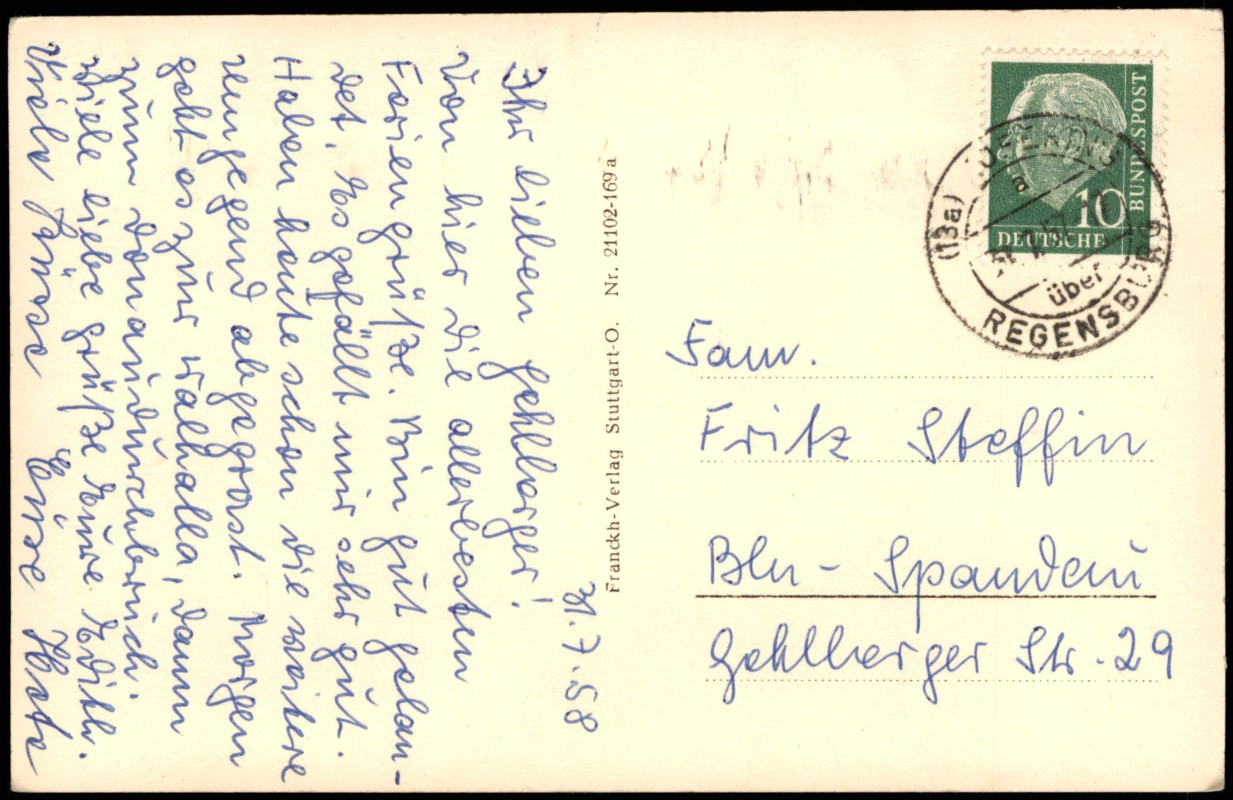 31.7.58
Ihr lieben Gehlberger!
Von hier die allerbesten
Feriengrüße. Bin gut gelan-
det, Es gefällt mir sehr gut.
Haben heute schon die weitere
Umgegend abgegrast. Morgen
geht es zur Walhalla, dann
zum Donaudurchbruch.
Viele liebe Grüße Eure Edith.
Viele Grüsse Eure
Franckh-Verlag Stuttgart-O. Nr. 21102-169 a
DEUTSCHE BUNDESPOST
10
(13a)
a
über
REGENSBURG
Fam.
Fritz Steffin
Bln - Spandau
Gehlberger Str. 29